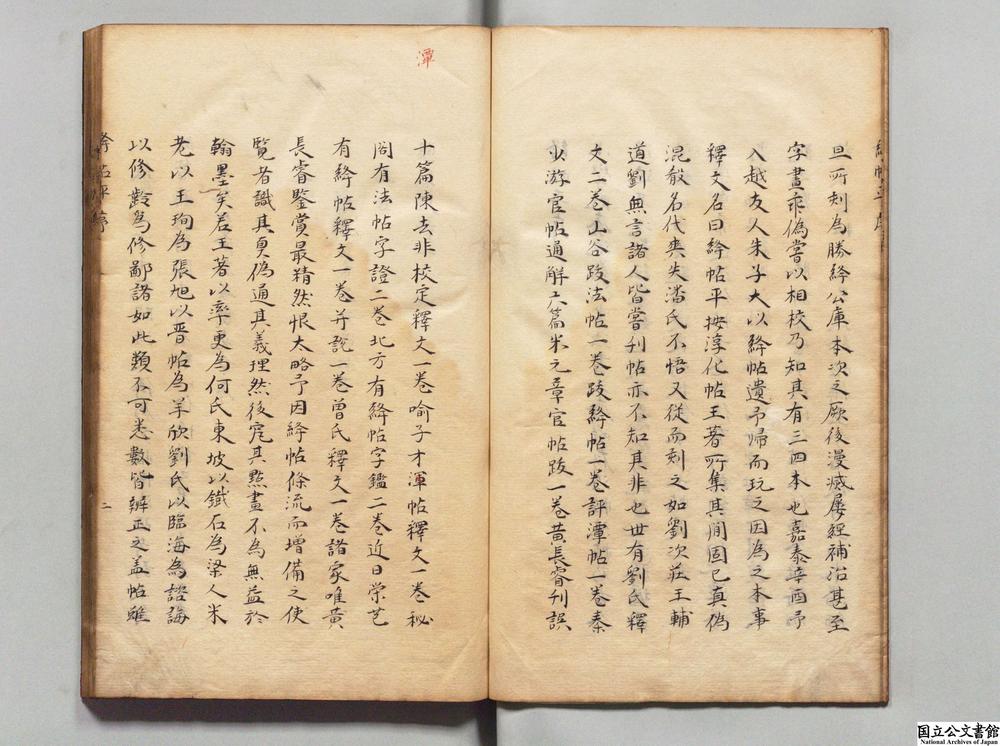 旦所刻為勝絳公庫本次之厥後漫滅屢經補治甚至
字畫乖偽嘗以相校乃知其有三四本也嘉泰辛酉予
入越友人朱子大以絳帖遺予歸而玩之因為之本事
釋文名曰絳帖平按淳化帖王著所集其間固已真偽
混淆名代爽失潘氏不悟又從而刻之如劉次莊王輔
道劉無言諸人皆嘗刊帖亦不知其非也世有劉氏釋
文二巻山谷跋法帖一巻跋絳帖一巻評潭帖一巻秦
少游官帖通解六篇米元章官帖跋一巻黄長睿刊誤
潭
十篇陳去非校定釋文一巻喻子才渾帖釋文一巻秘
閣有法帖字證二巻北方有絳帖字鑑二巻近日榮芑
有絳帖釋文一巻并說一巻曾氏釋文一巻諸家唯黄
長睿鑒賞最精然恨太略予因絳帖條流而增備之使
覽者識其真偽通其義理然後究其㸃畫不為無益於
翰墨矣若王著以率更為何氏東坡以鐵石為梁人米
老以王珣為張旭以晋帖為羊欣劉氏以臨海為諮誨
以修齡為修鄙諸如此類不可悉數皆辨正之盖帖雖
二
国立公文書館
National Archives of Japan